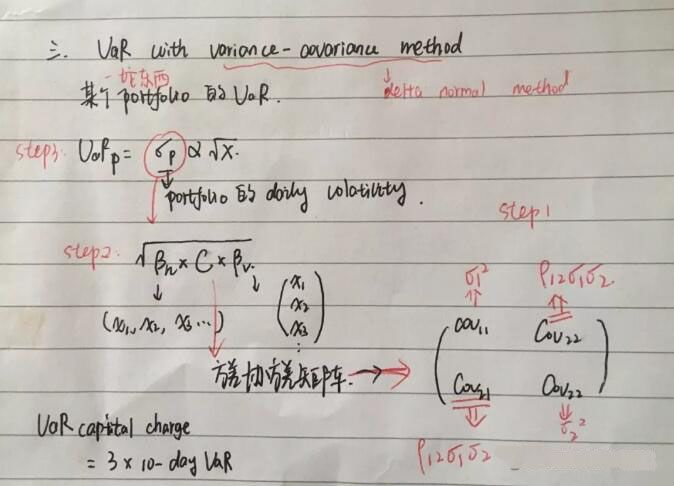 三. VaR with variance-covariance method
一坨东西
某个 portfolio 的 VaR.
delta normal method
step3: VaRp = σp α √x.
portfolio 的 daily volatility.
step1
step2: √βh × C × βv.
(x1, x2, x3 ...)
(x1
x2
x3
⋮)
σ1² ρ12σ1σ2
cov11 Cov22
Cov21 Cov22
ρ12σ1σ2 σ2²
方差协方差矩阵.
VaR capital charge
= 3 × 10-day VaR